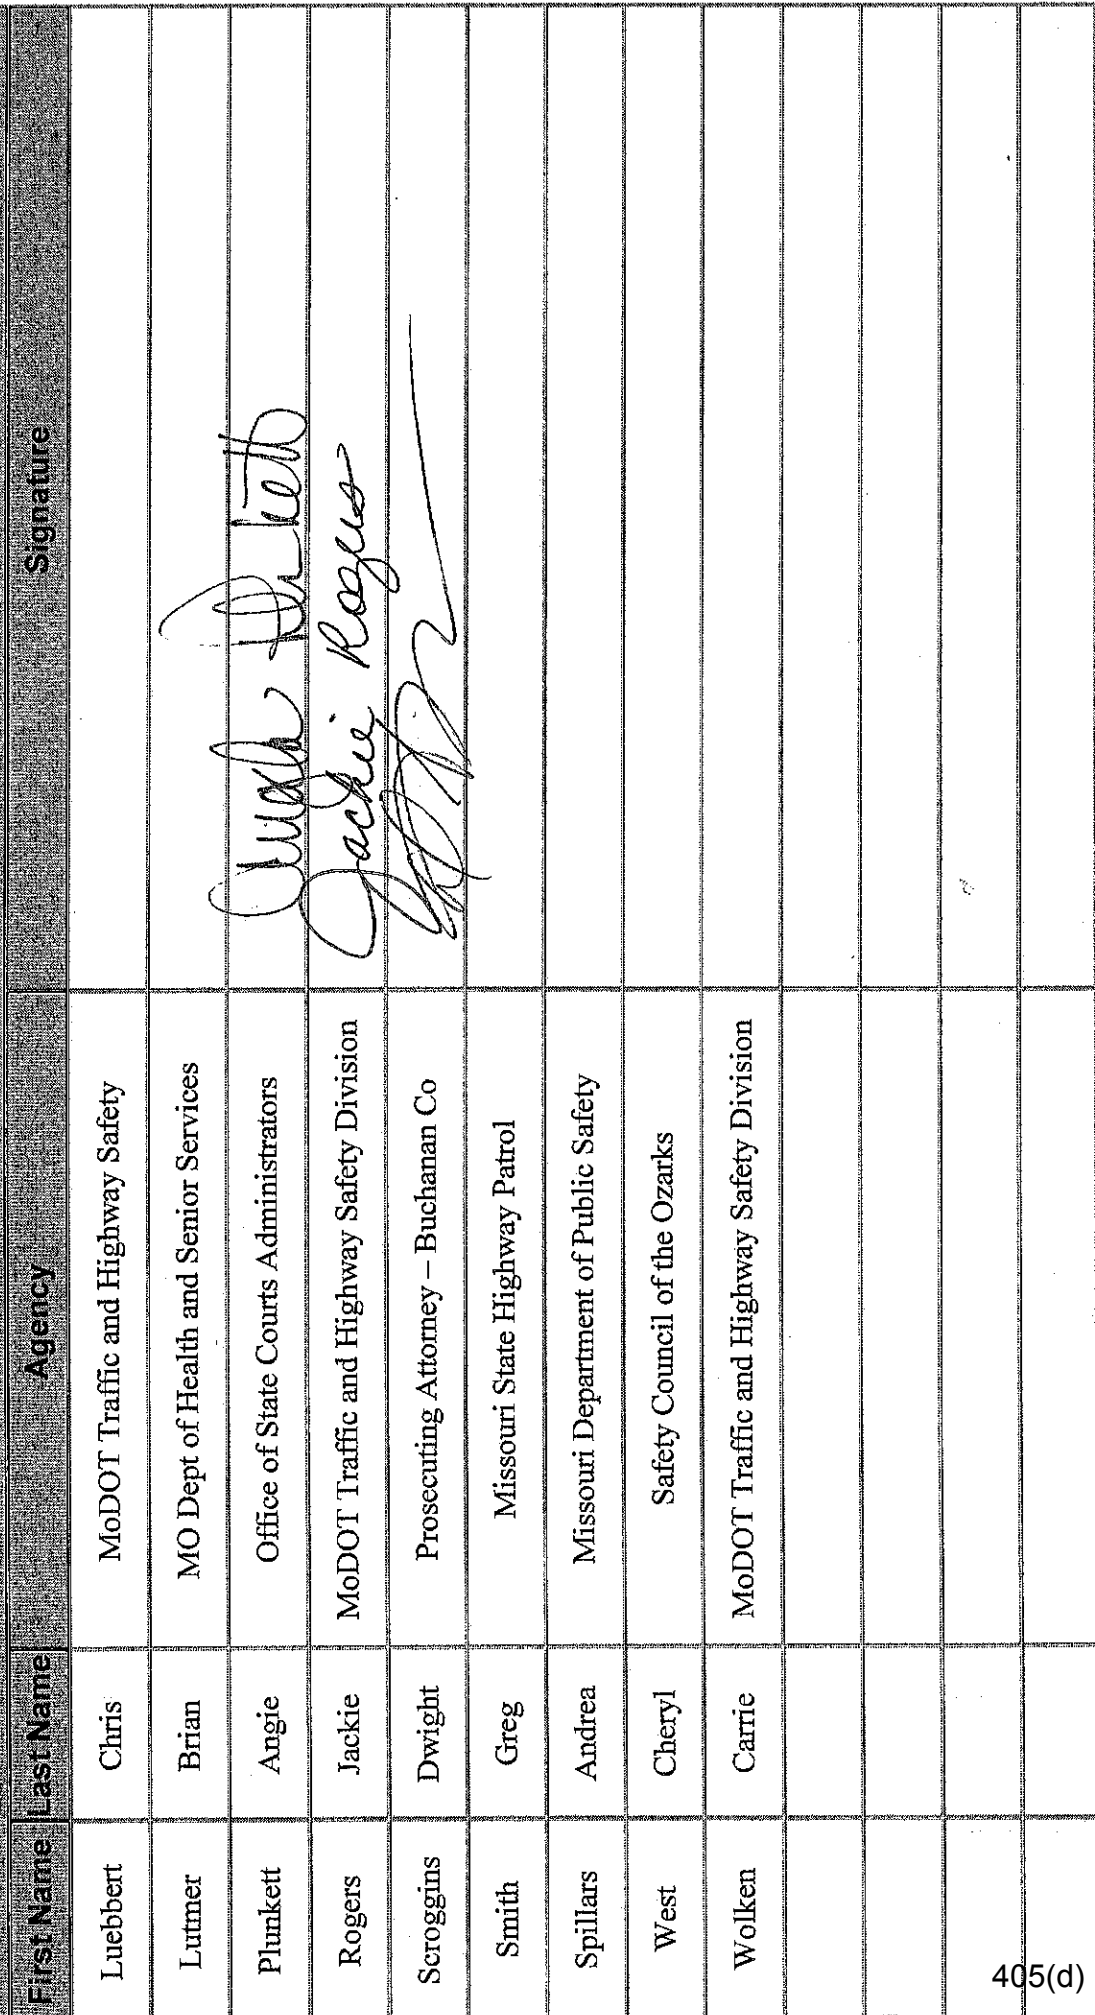 First Name Last Name Agency Signature
Luebbert Chris MoDOT Traffic and Highway Safety
Lutmer Brian MO Dept of Health and Senior Services
Plunkett Angie Office of State Courts Administrators Plunkett
Rogers Jackie MoDOT Traffic and Highway Safety Division Jackie Rogers
Scroggins Dwight Prosecuting Attorney – Buchanan Co
Smith Greg Missouri State Highway Patrol
Spillars Andrea Missouri Department of Public Safety
West Cheryl Safety Council of the Ozarks
Wolken Carrie MoDOT Traffic and Highway Safety Division
405(d)